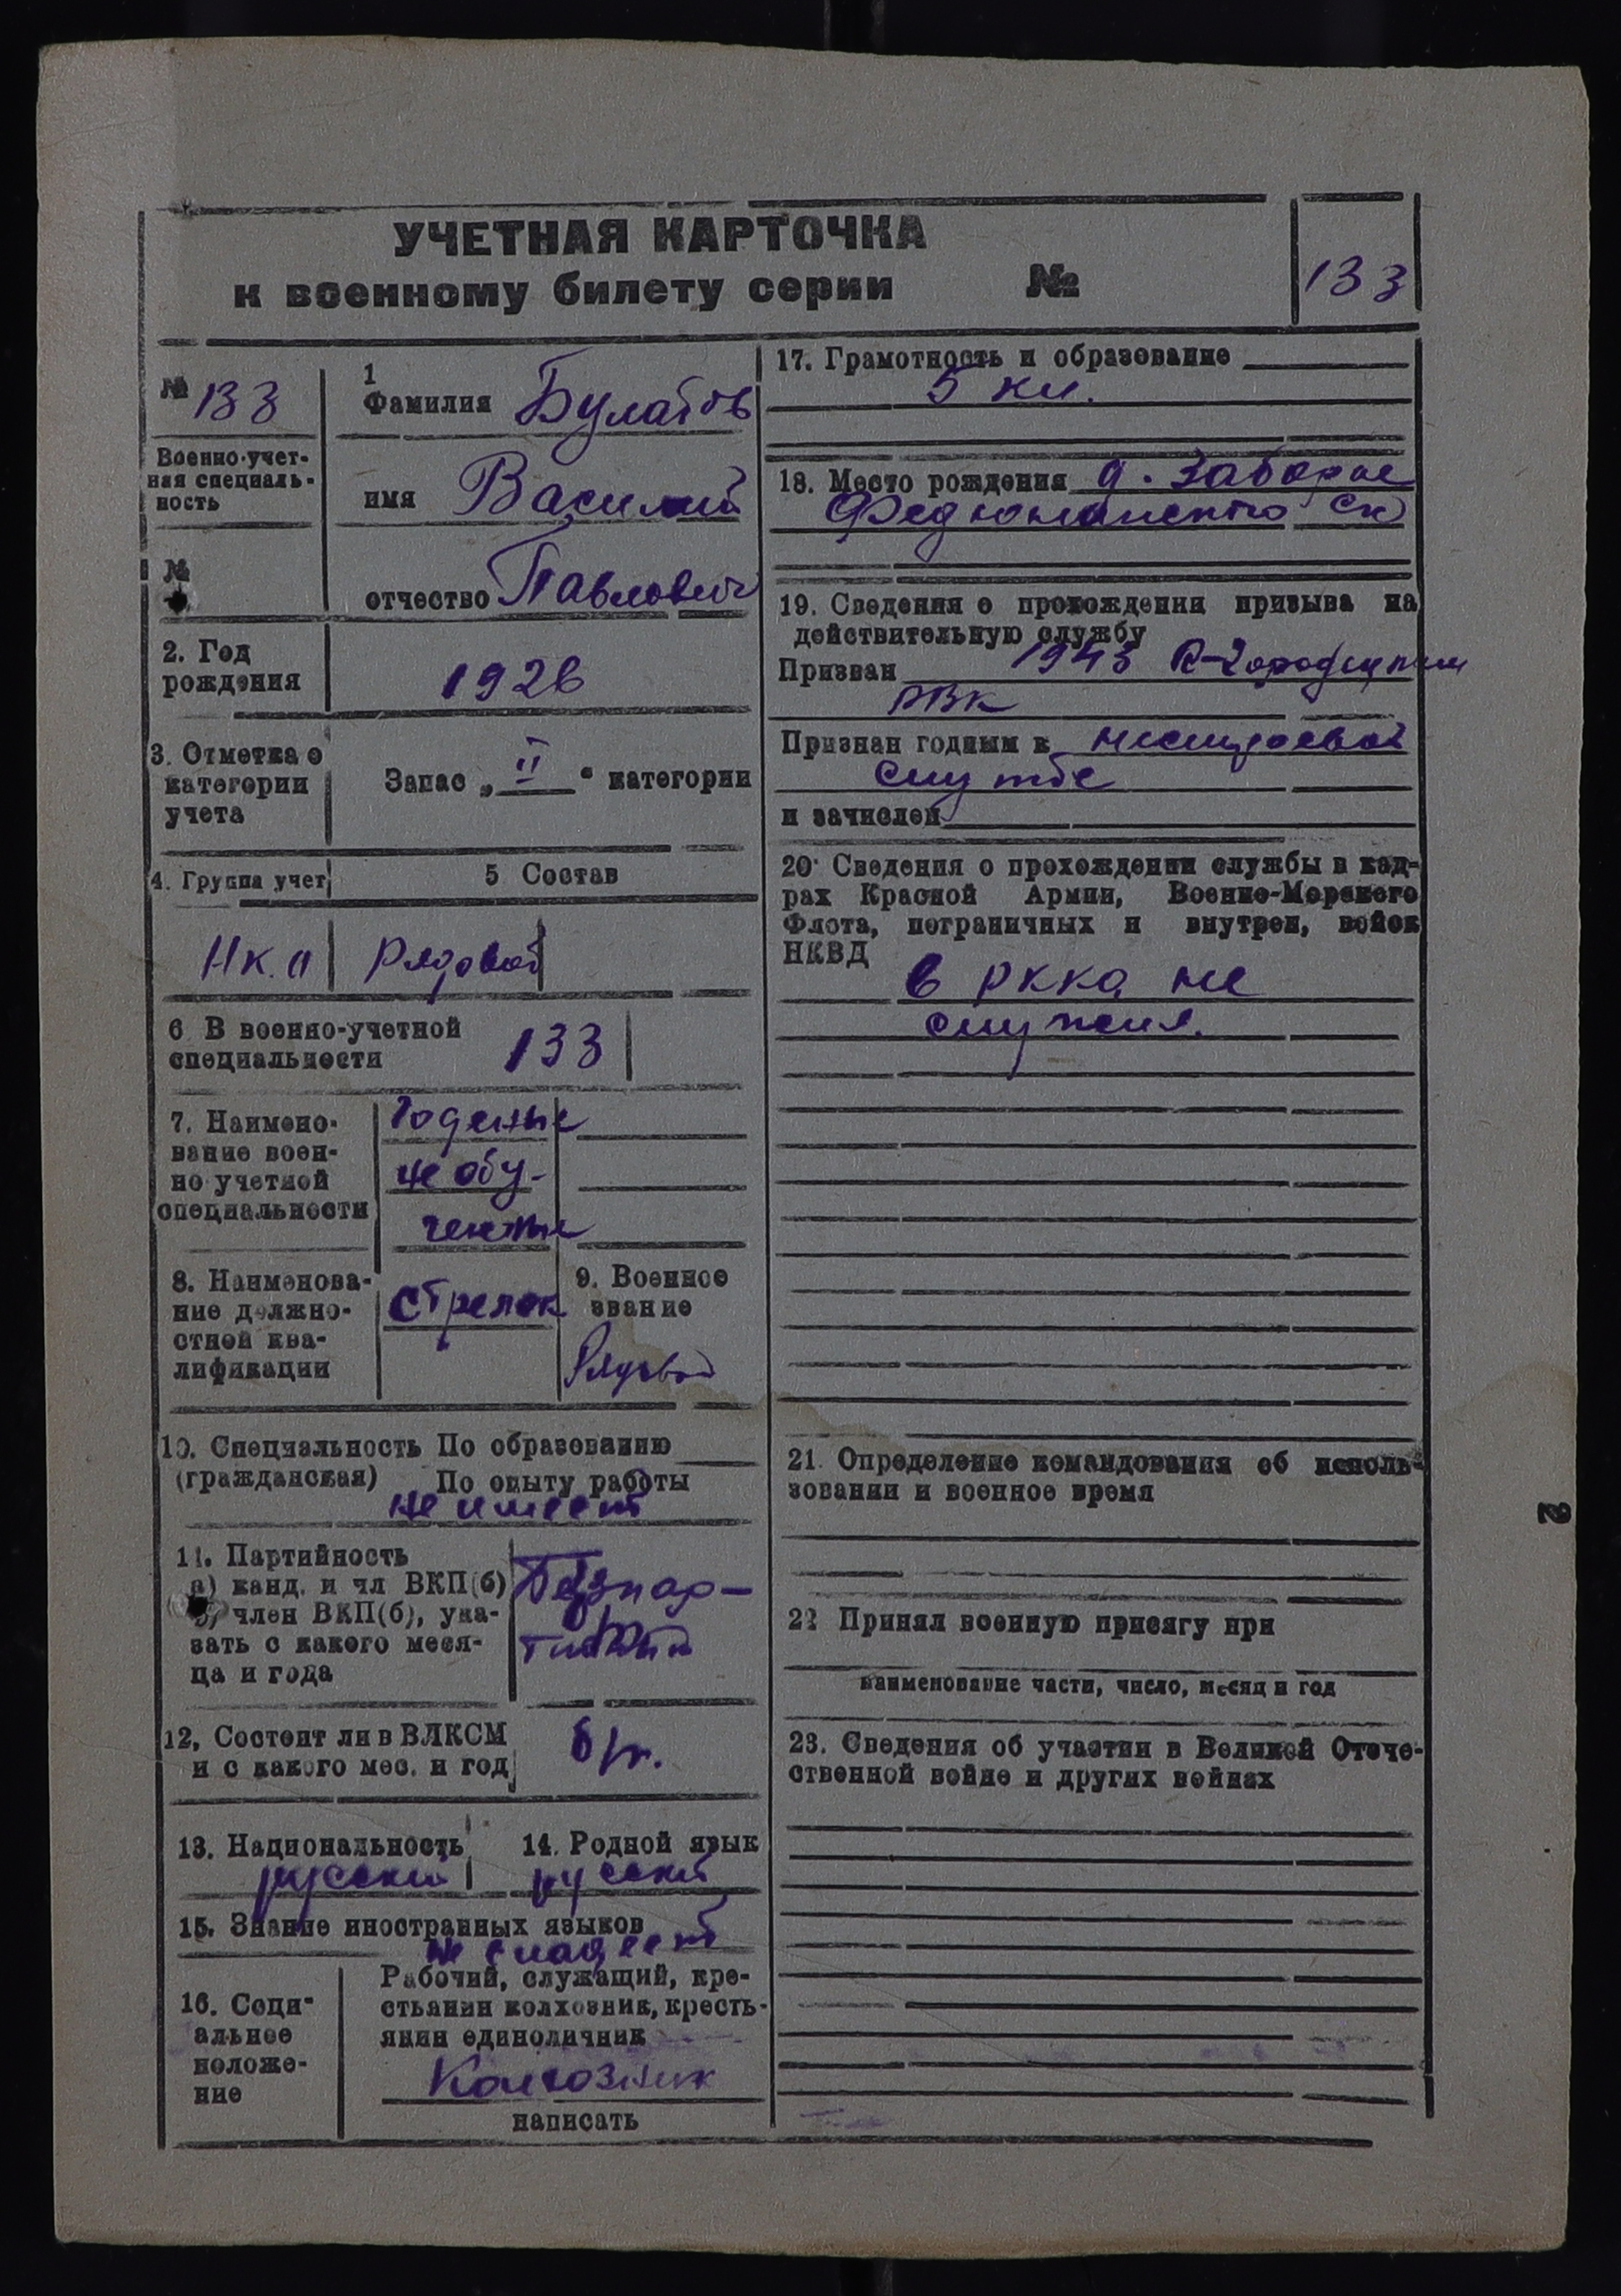 УЧЕТНАЯ КАРТОЧКА
к военному билету серии №
133
№ 133
Военно-учет-
ная специаль-
ность
№
1
Фамилия Булатов
имя Василий
отчество Павлович
2. Год
рождения
1926
3. Отметка о
категории
учета
Запас „II“ категории
4. Группа учет
5 Состав
Рядовой
6 В военно-учетной
специальности
133
7. Наимено-
вание воен-
но учетной
специальности
Годеные
не обу-
ченные
8. Наименова-
ние должно-
стной ква-
лификации
Стрелок
9. Военное
звание
Рядовой
10. Специальность По образованию
(гражданская) По опыту работы
не имеет
11. Партийность
а) канд. и чл ВКП(б)
б) член ВКП(б), ука-
зать с какого меся-
ца и года
Безпар-
тийный
12, Состоит ли в ВЛКСМ
и с какого мес. и год
13. Национальность
русский
14. Родной язык
русский
15. Знание иностранных языков
не владеет
16. Соци-
альное
положе-
ние
Рабочий, служащий, кре-
стьянин колхозник, кресть-
янин единоличник
Колхозник
написать
17. Грамотность и образование
5 кл.
18. Место рождения д. Заборье
с/с
19. Сведения о прохождении призыва на
действительную службу
Призван 1943
РВК
Признан годным к нестроевой
службе
и зачислен
20. Сведения о прохождении службы в кад-
рах Красной Армии, Военно-Морского
Флота, пограничных и внутрен, войск
НКВД
в РККА не
служил.
21. Определение командования об исполь-
зовании и военное время
22 Принял военную присягу при
наименование части, число, месяц и год
23. Сведения об участии в Великой Отече-
ственной войне и других войнах
2